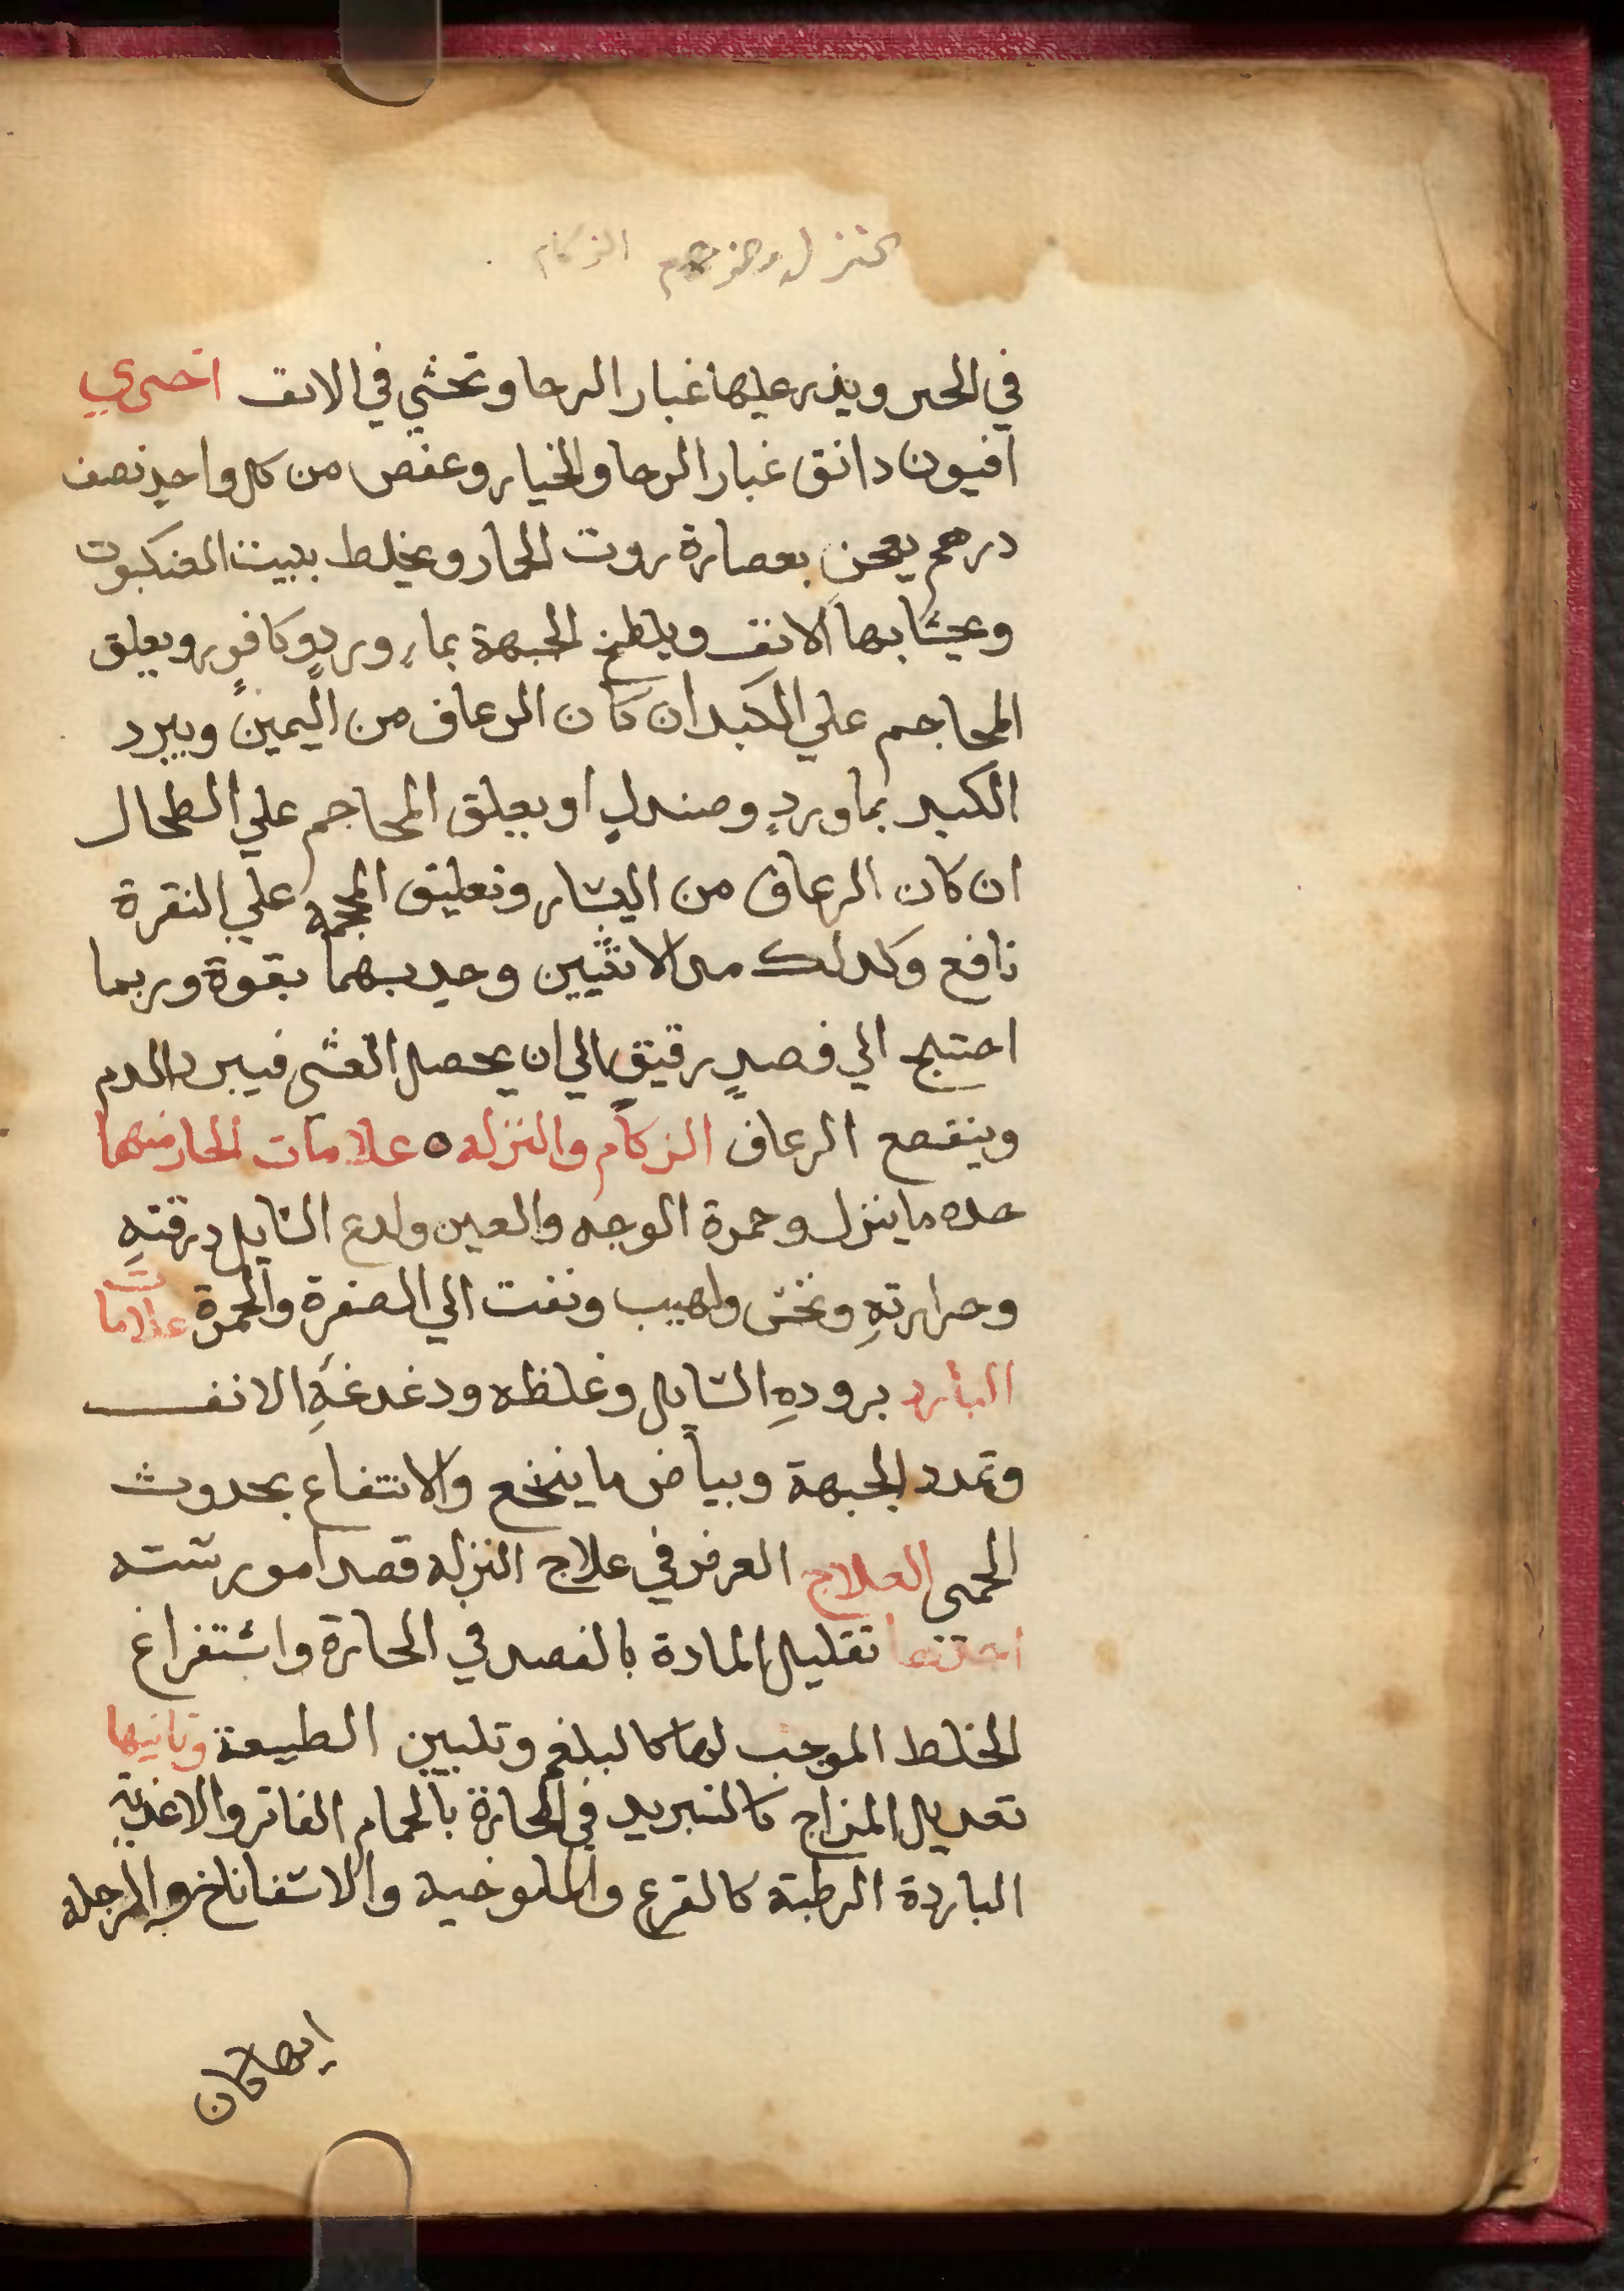 الزكام
في الحبر ويذر عليها غبار الرحا وتحشي في الانف اخري
افيون دانق غبار الرحا والخيار وعفص من كل واحدٍ نصف
درهم يعجن بعصارة روت الحمار ويخلط ببيت العنكبوت
ويحشا بها الانف ويلطخ الجبهة بماء وردٍ وكافورٍ ويعلق
المحاجم علي الكبد ان كان الرعاف من اليمين ويبرد
الكبد بماوردٍ وصندلٍ او يعلق المحاجم علي الطحال
ان كان الرعاف من اليسار وتعليق المحجمة علي النقرة
نافع وكدلك الانثيين وجدبهما بقوة وربما
احتيج الي فصدٍ رقيقٍ الي ان يحصل الغشي فيبرد الدم
وينقطع الرعاف الزكام والنزله ٥ علامات الحار منهما
حده ما ينزل وحمرة الوجه والعين ولدع السايل ورقتهِ
وحرارتهِ ونخس ولهيب ونفت الي الصفرة والحمرة علامات
البارد برودهِ السايل وغلظه ودغدغةِ الانف
وتمدد الجبهة وبياض ما ينخع والانتفاع بحدوث
الحمى العلاج الغرض في علاج النزله قصد امور سته
احدها تقليل المادة بالفصد في الحارة واستفراغ
الخلط الموجب لها كالبلغم وتليين الطبيعة وتانيها
تعديل المزاج كالتبريد في الحارة بالحمام الفاتر والاغدية
الباردة الرطبة كالقرع والملوخيه والاسفاناخ والرجله
ان كان